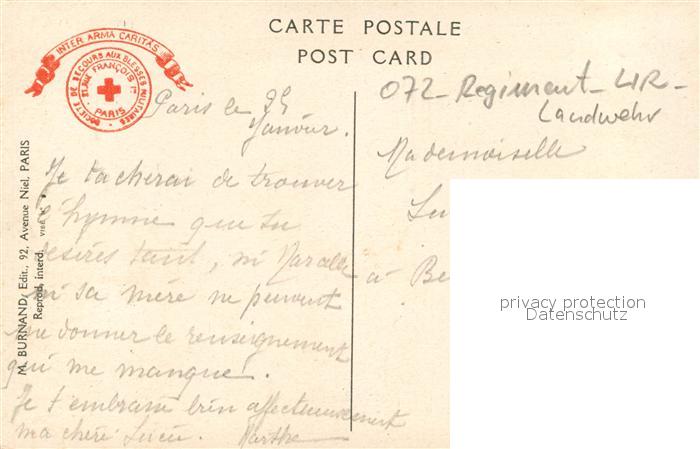 CARTE POSTALE
POST CARD
INTER ARMA CARITAS
SOCIÉTÉ DE SECOURS AUX BLESSÉS MILITAIRES
RUE FRANÇOIS 1er
PARIS
072 - Regiment - LIR -
Landwehr
Paris le 25
Janvier.
Je tacherai de trouver
l'hymne que tu
désires tant, ni Marcelle
ni sa mère ne peuvent
me donner le renseignement
qui me manque.
Je t'embrasse bien affectueusement
ma chère Lucie. Marthe
Mademoiselle
Lu
à Be
M. BURNAND, Edit., 92, Avenue Niel, PARIS
Reprod. interd. VISÉ
privacy protection
Datenschutz